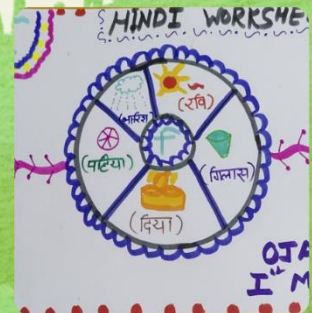 HINDI WORKSHE
(बारिश)
(रवि)
(पहिया)
(गिलास)
(दिया)
OJA
I st M